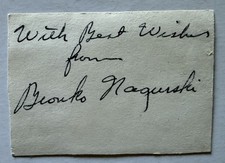 With Best Wishes
from
Bronko Nagurski